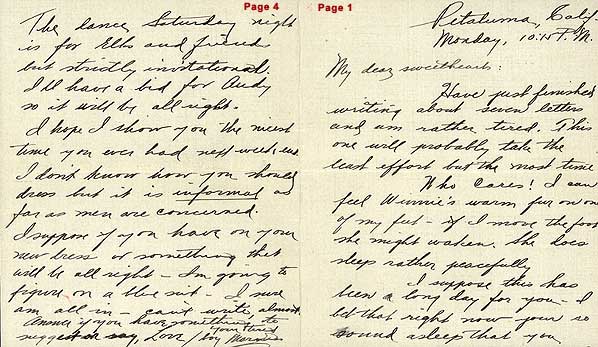 Page 4
The dance Saturday night
is for Elks and friends
but strictly invitational.
I'll have a bid for Andy
so it will be all right.
I hope I show you the nicest
time you ever had next week-end
I don't know how you should
dress but it is informal as
far as men are concerned.
I suppose if you have on your
new dress or something that
will be all right - I'm going to
figure on a blue suit - I sure
am all in - can't write, almost.
Answer if you have something to
suggest or say, Love / your tired
boy
Page 1
Petaluma, Calif.
Monday, 10:15 P.M.
My dear sweetheart:
Have just finished
writing about seven letters
and am rather tired. This
one will probably take the
least effort but the most time
Who Cares! I can
feel Winnie's warm fur on one
of my feet - if I move the foot
she might waken. She does
sleep rather peacefully
I suppose this has
been a long day for you - I
bet that right now your so
sound asleep that you